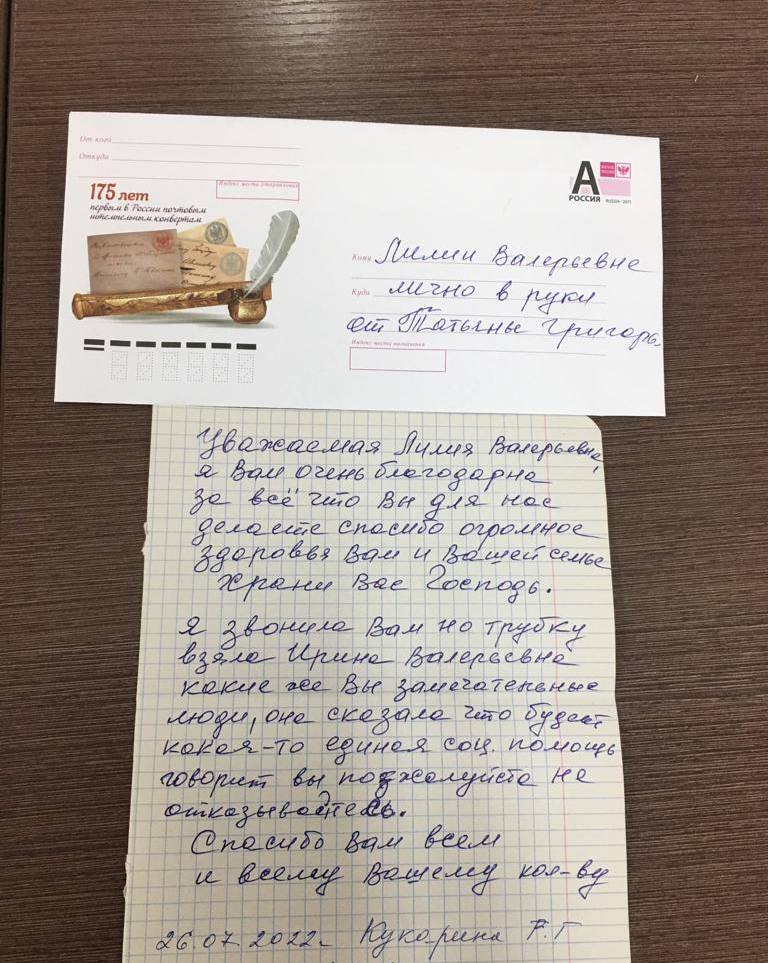 От кого
Откуда
Индекс места отправления
175 лет
первым в России почтовым
штемпельным конвертам
А
РОССИЯ
RUSSIA
ПОЧТА РОССИИ
Кому Лилии Валерьевне
Куда лично в руки
от Татьяны Григорь.
Индекс места назначения
Уважаемая Лилия Валерьевна,
я Вам очень благодарна
за всё что Вы для нас
делаете спасибо огромное
здоровья Вам и Вашей семье
Храни Вас Господь.
Я звонила Вам но трубку
взяла Ирина Валерьевна
какие же Вы замечательные
люди, она сказала что будет
какая-то единая соц. помощь
говорит вы пожалуйста не
отказывайтесь.
Спасибо Вам всем
и всему Вашему кол-ву
26.07.2022г. Кукарина Т.Г